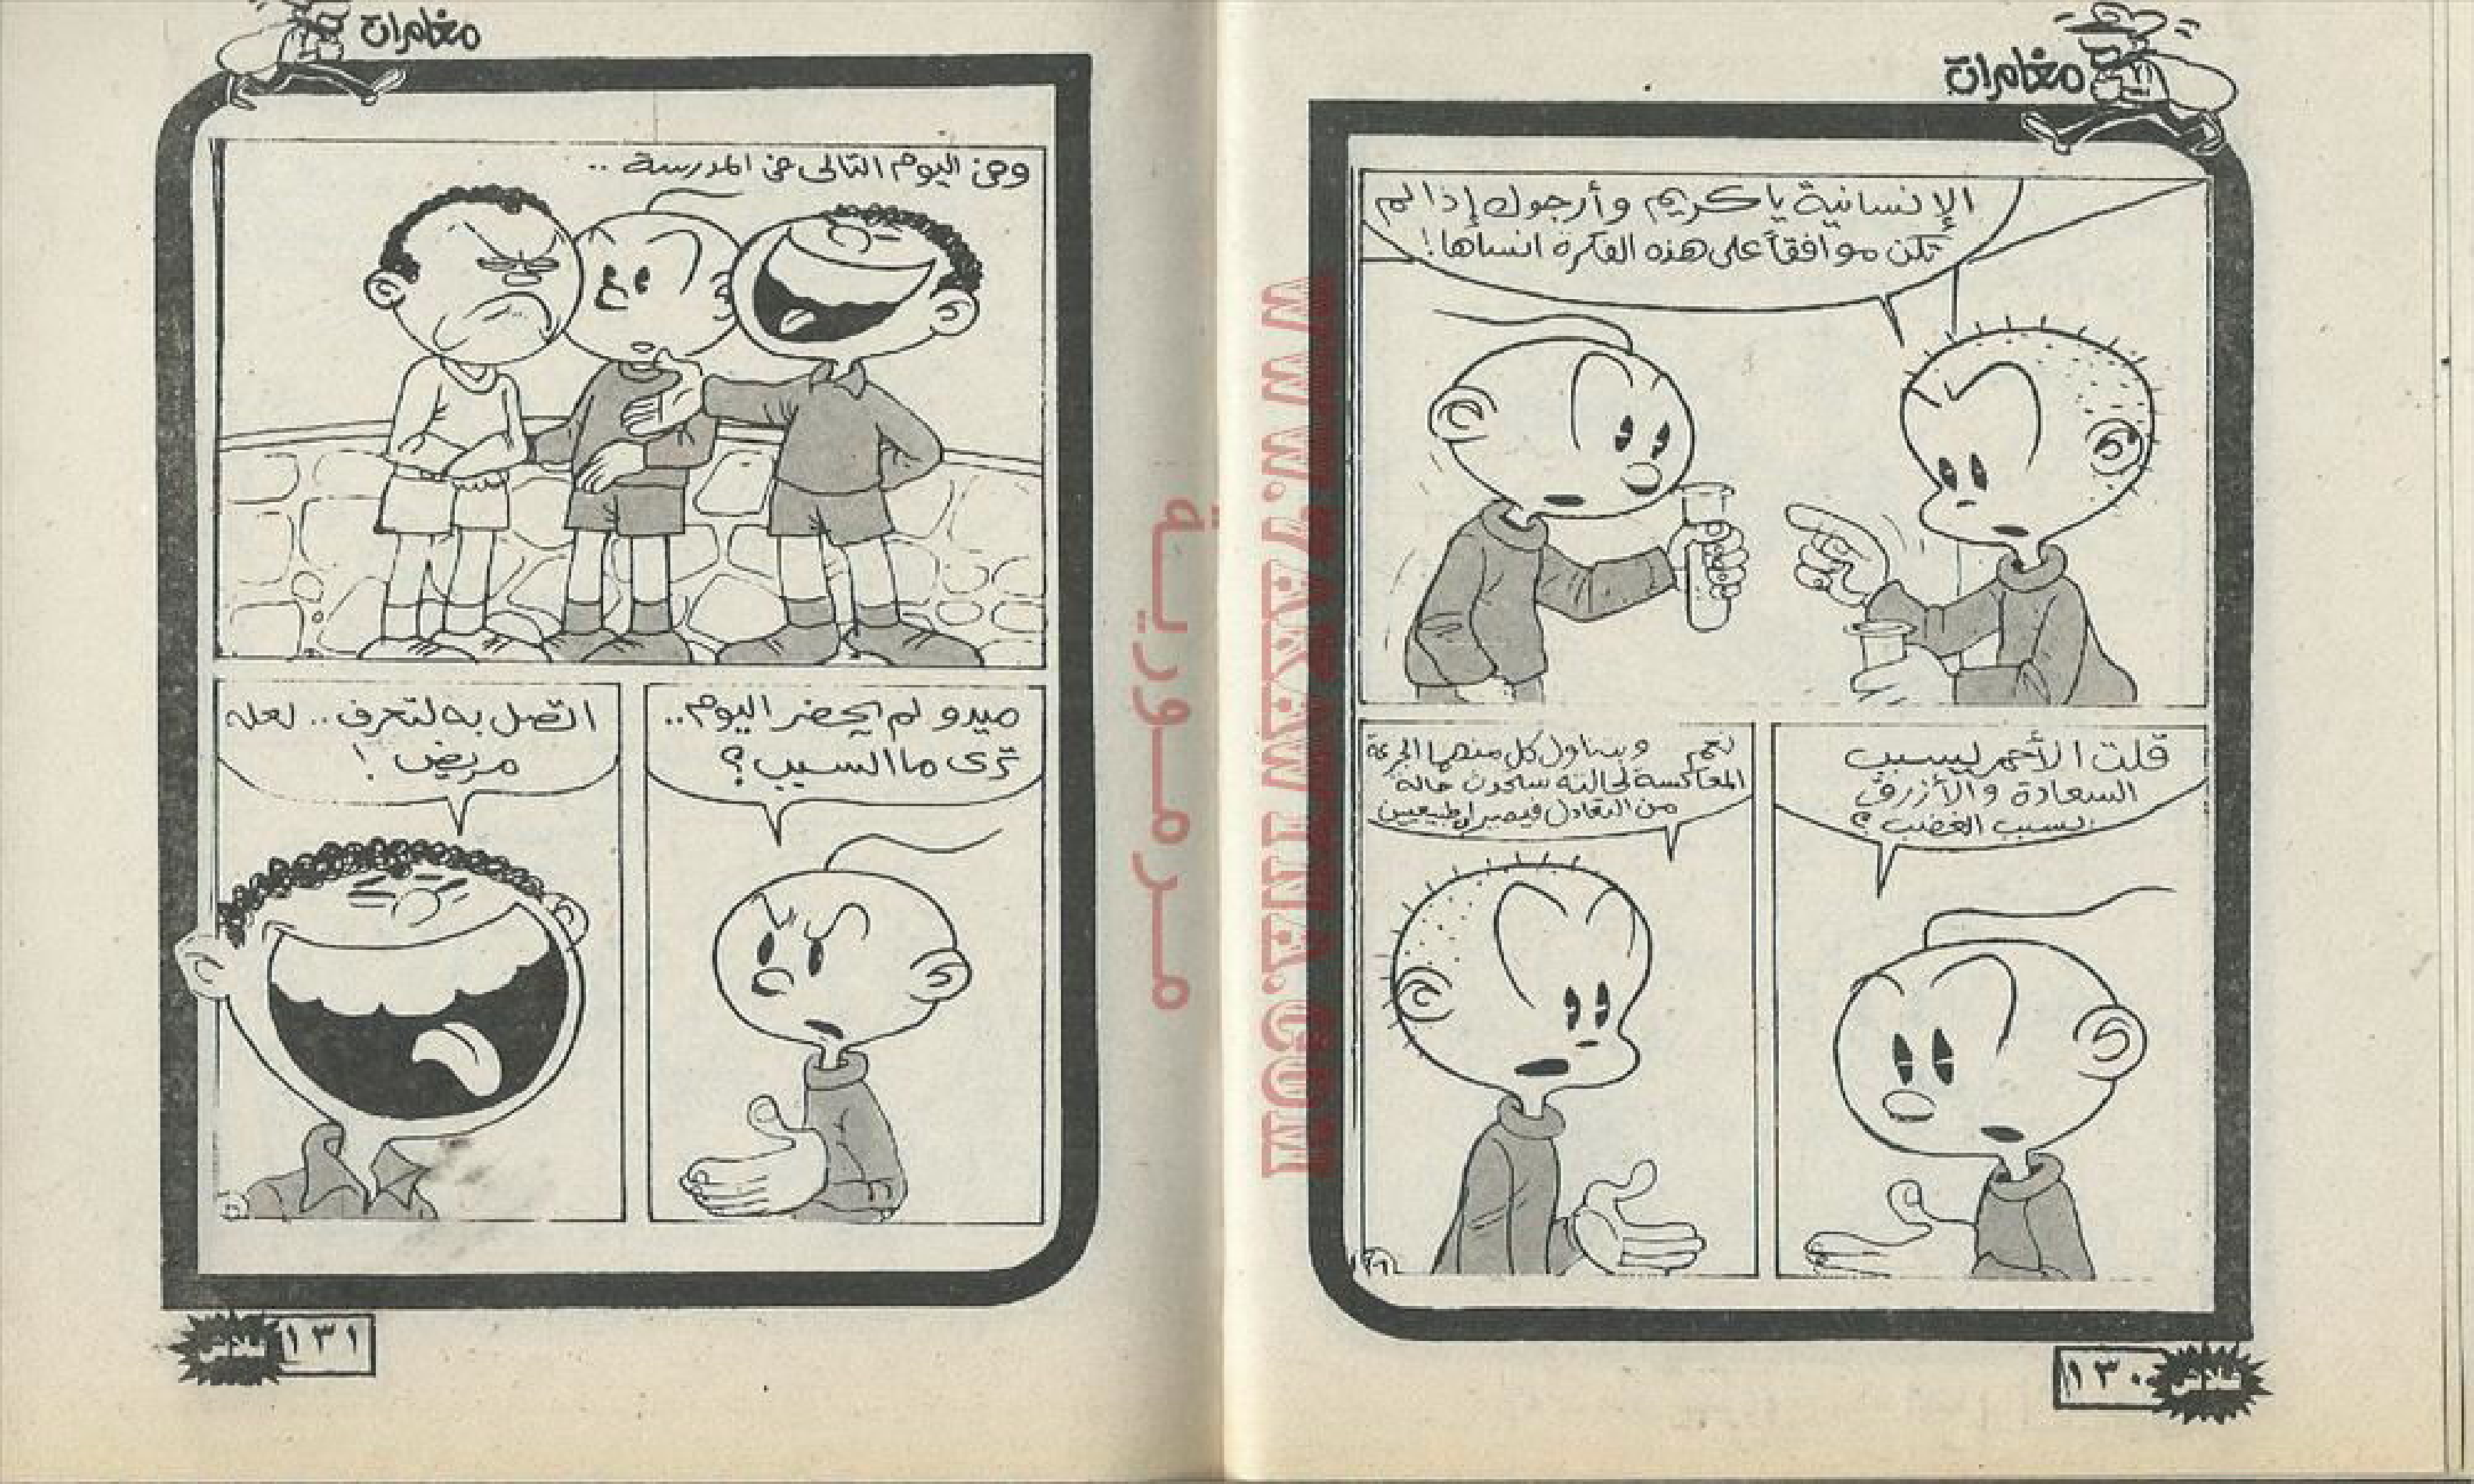 مغامرات
الإنسانية ياكريم وأرجوك إذا لم
تكن موافقاً على هذه الفكرة انساها!
قلت الأحمر ليسبب
السعادة والأزرق
يسبب الغضب ؟
نعم وبتناول كل منهما الجرعة
المعاكسة لحالته ستحدث حالة
من التعادل فيصيران طبيعيين
١٣٠
فلاش
مغامرات
وفى اليوم التالى فى المدرسة ..
ميدو لم يحضر اليوم..
تُرى ما السبب ؟
اتصل به لتعرف .. لعله
مريض !
١٣١
فلاش
مرمورية